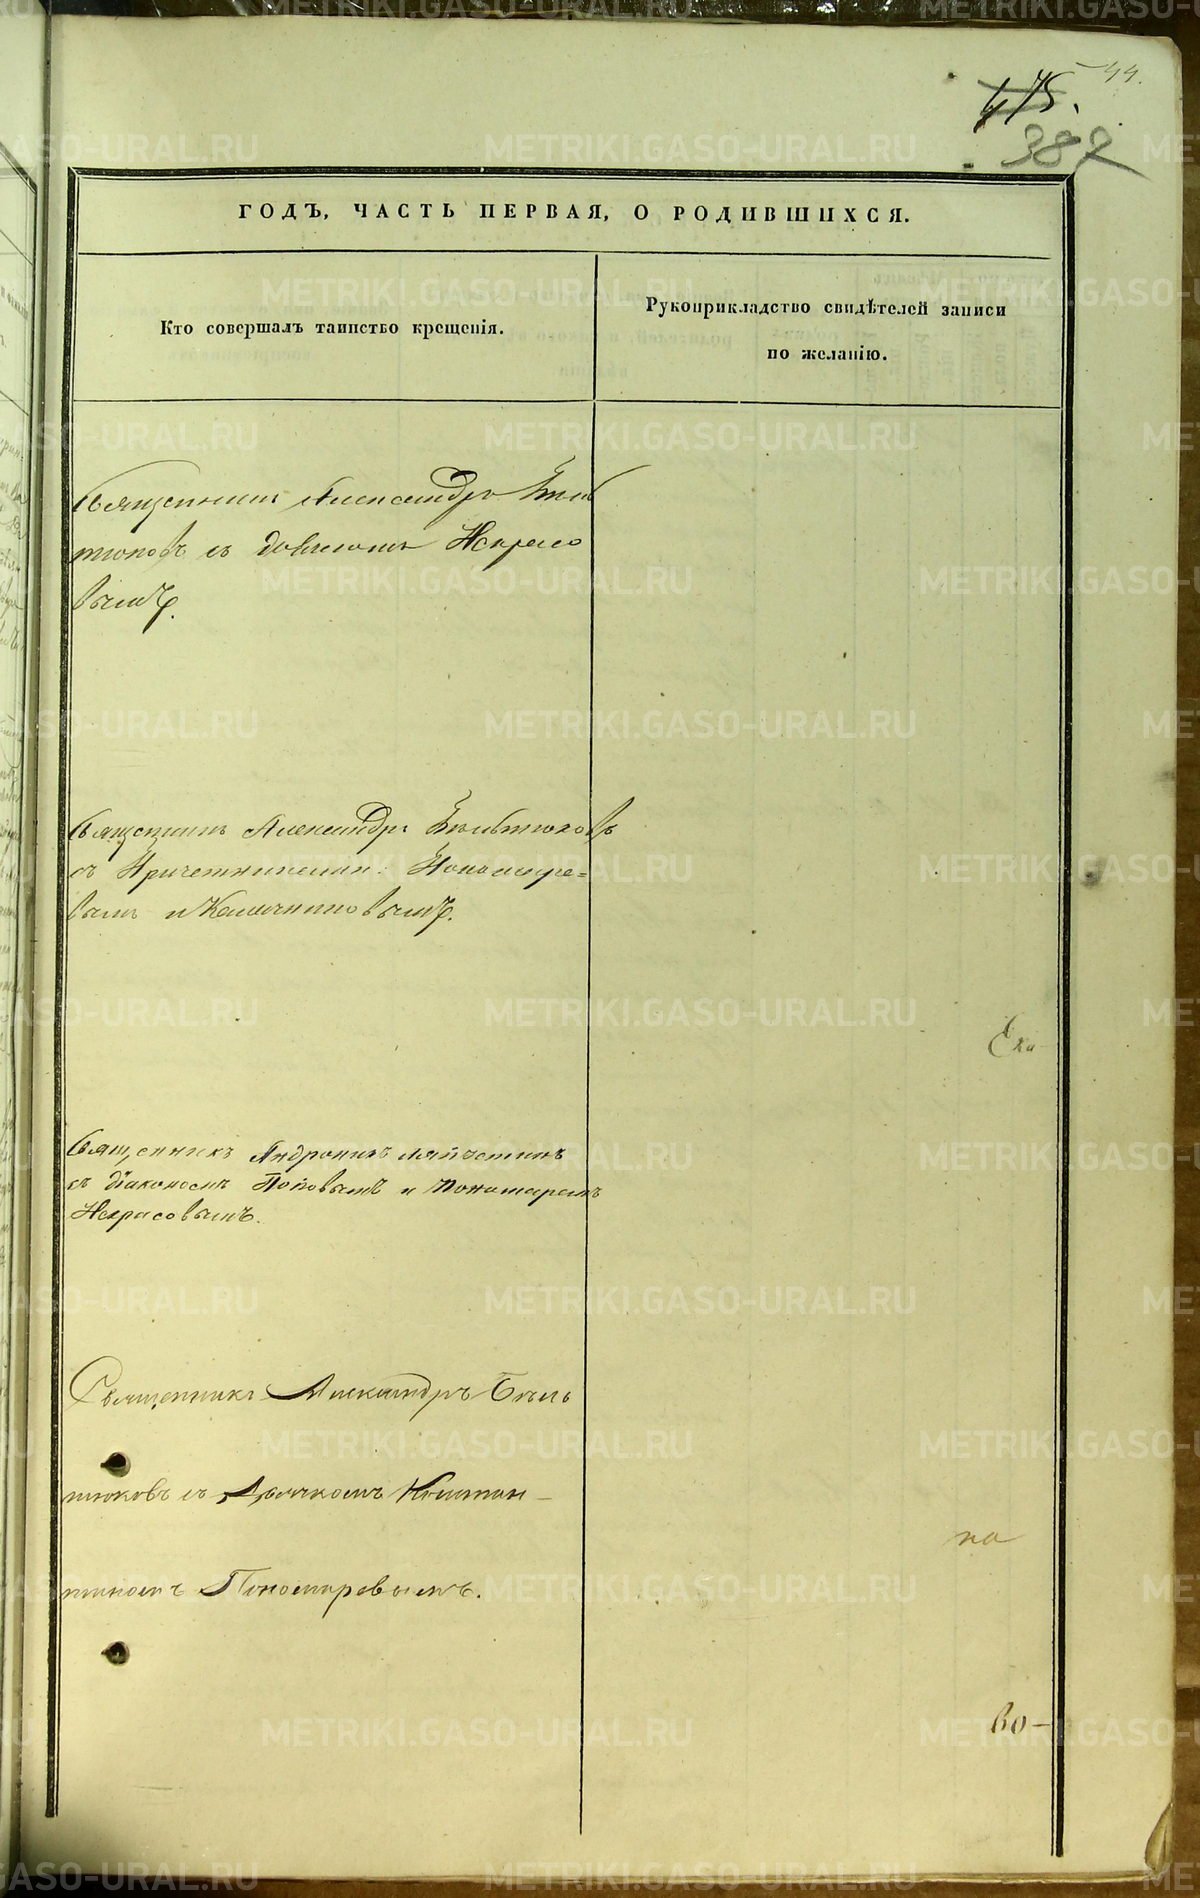 44.
475.
387
ГОДЪ, ЧАСТЬ ПЕРВАЯ, О РОДИВШИХСЯ.
Кто совершалъ таинство крещенія.
Рукоприкладство свидѣтелей записи
по желанію.
Священникъ Александръ Бѣль
тюковъ съ діакономъ Некрасо
вымъ.
Священникъ Александръ Бѣльтюковъ
съ Причетниками: Пономаре=
вымъ и Калачниковымъ.
Священникъ Андроникъ
съ діакономъ Поповымъ и Пономаремъ
Некрасовымъ.
Священникъ Александръ Бѣль
тюковъ съ Дьячкомъ Констан-
тиномъ Пономаревымъ.
Ека-
по
во-
METRIKI.GASO-URAL.RU